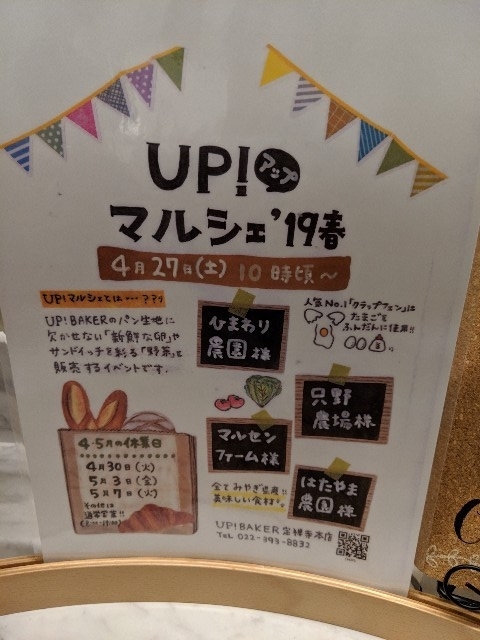 UP! アップ
マルシェ'19春
4月27日(土) 10時頃～
UP!マルシェとは…???
UP!BAKERのパン生地に
欠かせない「新鮮な卵」や
サンドイッチを彩る「野菜」を
販売するイベントです。
ひまわり
農園様
人気No.1「クラップフェン」は
たまごを
ふんだんに使用!!
只野
農場様
マルセン
ファーム様
はたやま
農園様
4-5月の休業日
4月30日(火)
5月3日(金)
5月7日(火)
その他は
通常営業!!
全てみやぎ県産!!
美味しい食材
UP!BAKER定禅寺本店
TEL 022-393-8832